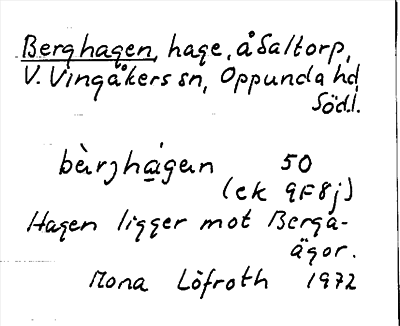 Berghagen, hage, å Saltorp,
V. Vingåkers sn, Oppunda hd
Södl.
bàrjhágan 50
(ek 9F8j)
Hagen ligger mot Berga-
ägor.
Mona Löfroth 1972